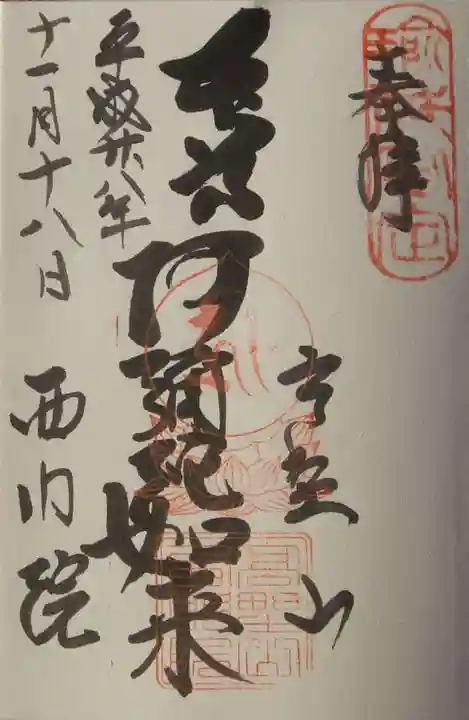 奉拝
高野山
本尊
阿彌陀如来
平成廿八年
十一月十八日
西门院